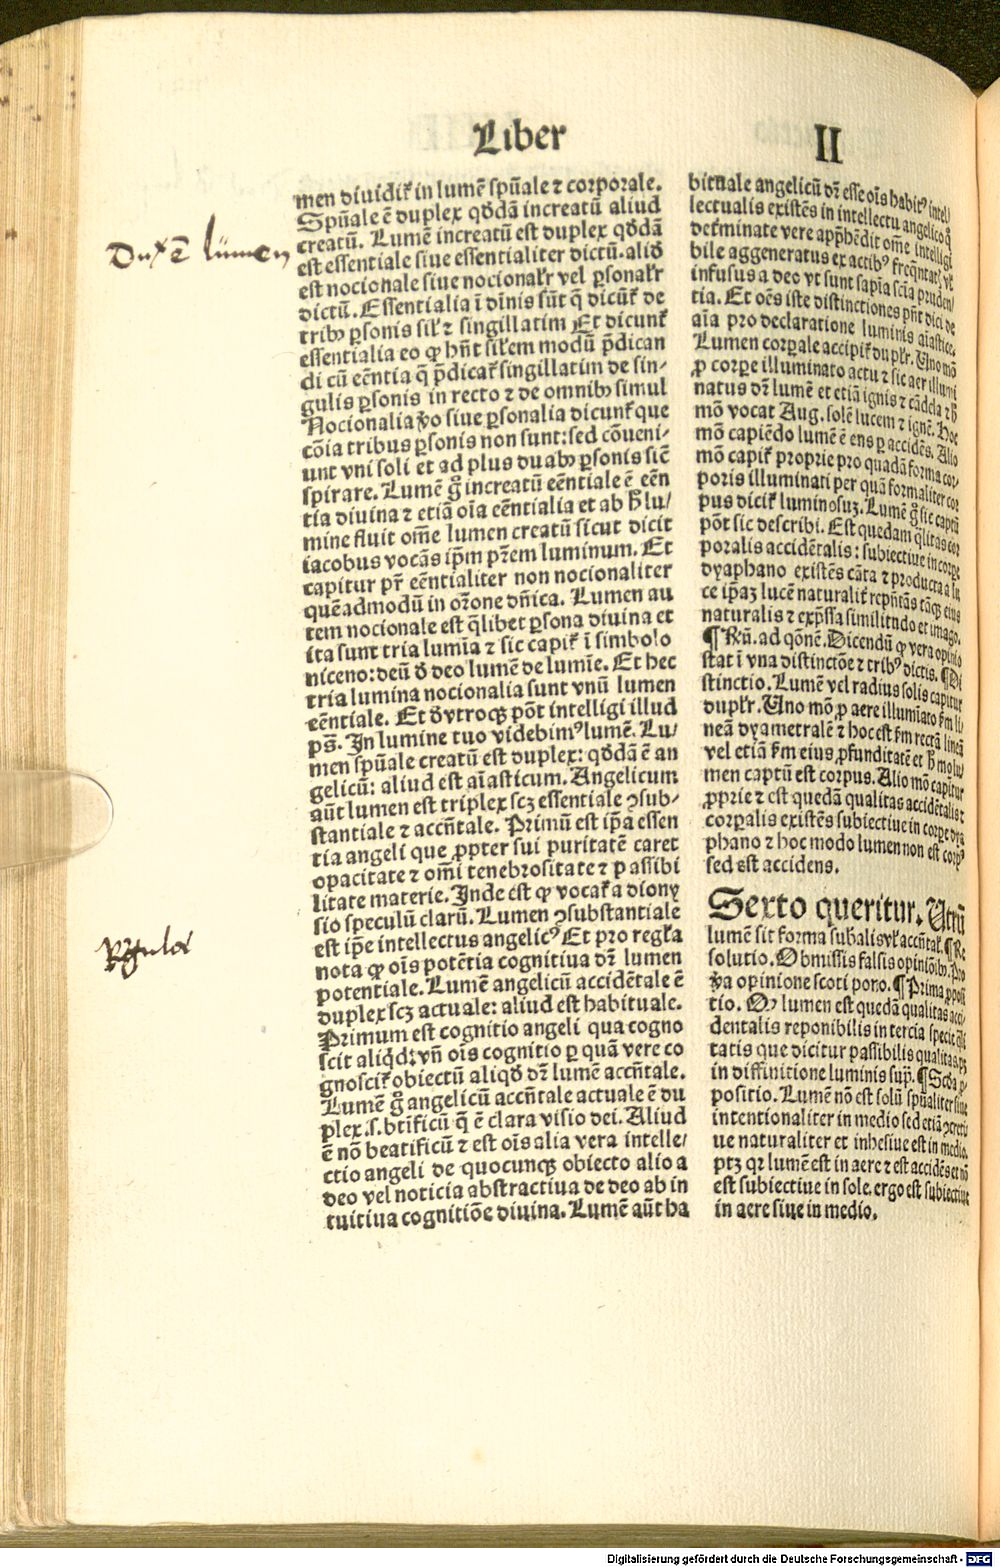 Liber
II
men diuidit᷑ in lumē spūale ⁊ corporale.
Spūale ē duplex qđdā increatū aliud
creatū. Lumē increatū est duplex qđdā
est essentiale siue essentialiter dictū. aliđ
est nocionale siue nocional᷑r vel ꝑsonal᷑r
dictū. Essentialia ī diuinis sūt q̄ dicūt᷑ de
tribꝫ ꝑsonis sil᷑ ⁊ singillatim Et dicunt᷑
essentialia eo ꝙ hn̄t sil᷑em modū p̄dican
di cū eēntia q̄ p̄dicat᷑ singillatim de sin-
gulis ꝑsonis in recto ⁊ de omnibꝫ simul
Nocionalia v̓o siue ꝑsonalia dicunt᷑ que
cōia tribus ꝑsonis non sunt: sed cōueni-
unt vni soli et ad plus duabꝫ ꝑsonis sic̄
spirare. Lumē g̊ increatū eēntiale ē eēn
tia diuina ⁊ etiā oīa eēntialia et ab h̄ lu/
mine fluit om̄e lumen creatū sicut dicit
iacobus vocās ip̄m pr̄em luminum. Et
capitur pr̄ eēntialiter non nocionaliter
quēadmodū in or̄one dn̄ica. Lumen au
tem nocionale est q̄libet ꝑsona diuina et
ita sunt tria lumīa ⁊ sic capit᷑ ī simbolo
niceno: deū đ deo lumē de lumīe. Et hec
tria lumina nocionalia sunt vnū lumen
eēntiale. Et đ vtroqꝫ pōt intelligi illud
ps̄. In lumine tuo videbimꝰ lumē. Lu/
men spūale creatū est duplex: qđdā ē an
gelicū: aliud est aīasticum. Angelicum
aūt lumen est triplex scꝫ essentiale ꝯsub-
stantiale ⁊ accn̄tale. Primū est ip̄a essen
tia angeli que ꝓpter sui puritatē caret
opacitate ⁊ om̄i tenebrositate ⁊ passibi
litate materie. Inde est ꝙ vocat᷑ a diony
sio speculū clarū. Lumen ꝯsubstantiale
est ip̄e intellectus angelicꝰ Et pro regl᷑a
nota ꝙ oīs potētia cognitiua dr̄ lumen
potentiale. Lumē angelicū accidētale ē
duplex scꝫ actuale: aliud est habituale.
Primum est cognitio angeli qua cogno
scit aliqđ: vn̄ oīs cognitio ꝑ quā vere co
gnoscit᷑ obiectū aliqđ dr̄ lumē accn̄tale.
Lumē g̊ angelicū accn̄tale actuale ē du
plex .s. btīficū q̄ ē clara visio dei. Aliud
ē nō beatificū ⁊ est oīs alia vera intelle/
ctio angeli de quocunqꝫ obiecto alio a
deo vel noticia abstractiua de deo ab in
tuitiua cognitiōe diuina. Lumē aūt ha
bituale angelicū dr̄ esse oīs habitꝰ intel/
lectualis existēs in intellectu angelico q̊
det᷑minate vere app̄hēdit om̄e intelligi
bile aggeneratus ex actibꝰ freq̄ntatꝭ vl᷑
infusus a deo vt sunt sapīa scīa pruden/
tia. Et oēs iste distinctiones pn̄t dici de
aīa pro declaratione luminis aīastice.
Lumen corꝑale accipit᷑ dupl᷑r. Uno mō
ꝓ corꝑe illuminato actu ⁊ sic aer illumi
natus dr̄ lumē et etiā ignis ⁊ cādela ⁊ h̄
mō vocat Aug. solē lucem ⁊ ignē. Hoc
mō capiēdo lumē ē ens ꝑ accidēs. Alio
mō capit᷑ proprie pro quadā forma cor-
poris illuminati per quā formaliter cor
pus dicit᷑ luminosuꝫ. Lumē g̊ sic captū
pōt sic describi. Est quedam q̄litas cor
poralis accidētalis: subiectiue in corꝑe
dyaphano existēs cāta ⁊ producta a lu
ce ip̄aꝫ lucē naturalit᷑ rep̄n̄tās tāqꝫ eius
naturalis ⁊ exp̄ssa similitudo et imago.
¶ Rn̄. ad qōnē. Dicendū ꝙ vera opinio
stat ī vna distinctōe ⁊ tribꝰ dictis. ¶ Di
stinctio. Lumē vel radius solis capitur
dupl᷑r. Uno mō ꝓ aere illumīato ẜm li/
neā dyametralē ⁊ hoc est ẜm rectā lineā
vel etiā ẜm eius ꝓfunditatē et h̄ mō lu/
men captū est corpus. Alio mō capitur
ꝓprie ⁊ est quedā qualitas accidētalis ⁊
corꝑalis existēs subiectiue in corꝑe dya
phano ⁊ hoc modo lumen non est corpꝰ
sed est accidens.
Sexto queritur. Utrū
lumē sit forma sub̄alis vl᷑ accn̄tal᷑. ¶ Re
solutio. Obmissis falsis opiniōibꝫ. Pro
v̓a opinione scoti pono. ¶ Prima ꝓposi
tio. Qꝫ lumen est quedā qualitas acci/
dentalis reponibilis in tercia specie q̄li
tatis que dicitur passibilis qualitas. pꝫ
in diffinitione luminis sup̄. ¶ Scđa ꝓ-
positio. Lumē nō est solū spūaliter siue
intentionaliter in medio sed etiā ꝯcreti
ue naturaliter et inhesiue est in medio.
ptꝫ qꝛ lumē est in aere ⁊ est accidēs et nō
est subiectiue in sole. ergo est subiectiue
in aere siue in medio.
lumen